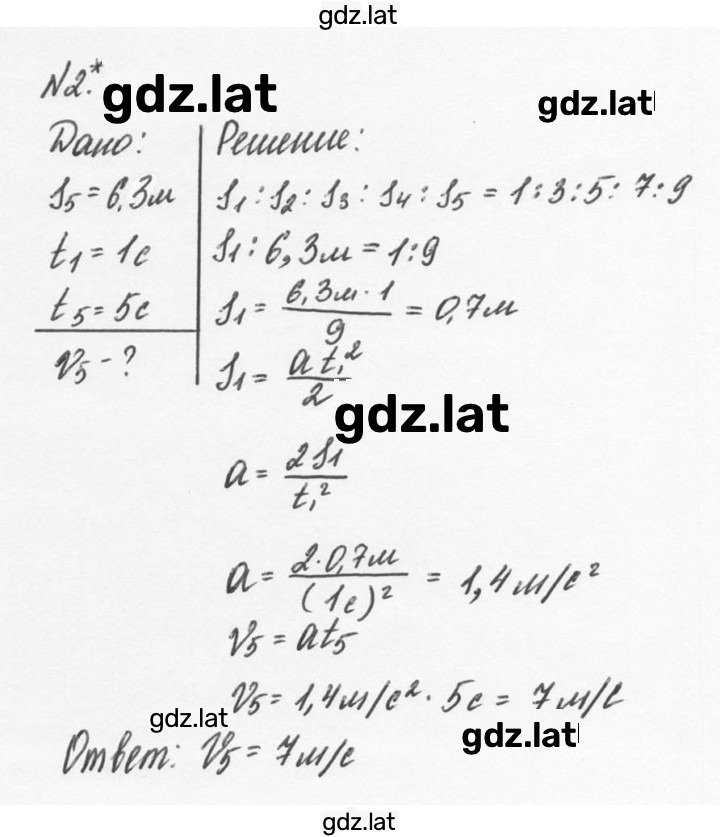 gdz.lat
N2.* gdz.lat gdz.lat
Дано: Решение:
S₅ = 6,3м S₁ : S₂ : S₃ : S₄ : S₅ = 1:3:5:7:9
t₁ = 1с S₁ : 6,3м = 1:9
t₅ = 5с S₁ = (6,3м · 1)/9 = 0,7м
V₅ - ? S₁ = at₁²/2
gdz.lat
a = 2S₁/t₁²
a = (2·0,7м)/(1с)² = 1,4м/с²
V₅ = at₅
V₅ = 1,4м/с² · 5с = 7м/с
gdz.lat gdz.lat
Ответ: V₅ = 7м/с
gdz.lat